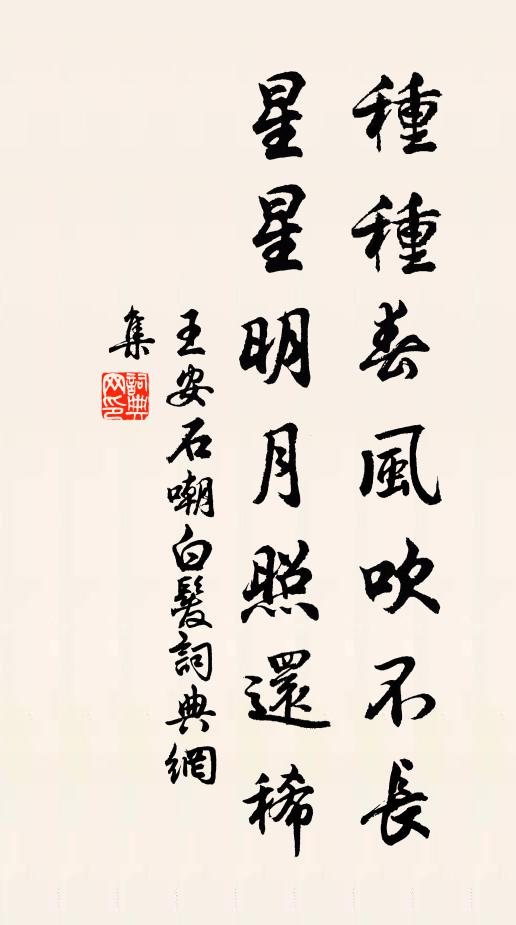 種種春風吹不長
星星明月照還稀
王安石嘲白髮詞典網
集
詞典網印